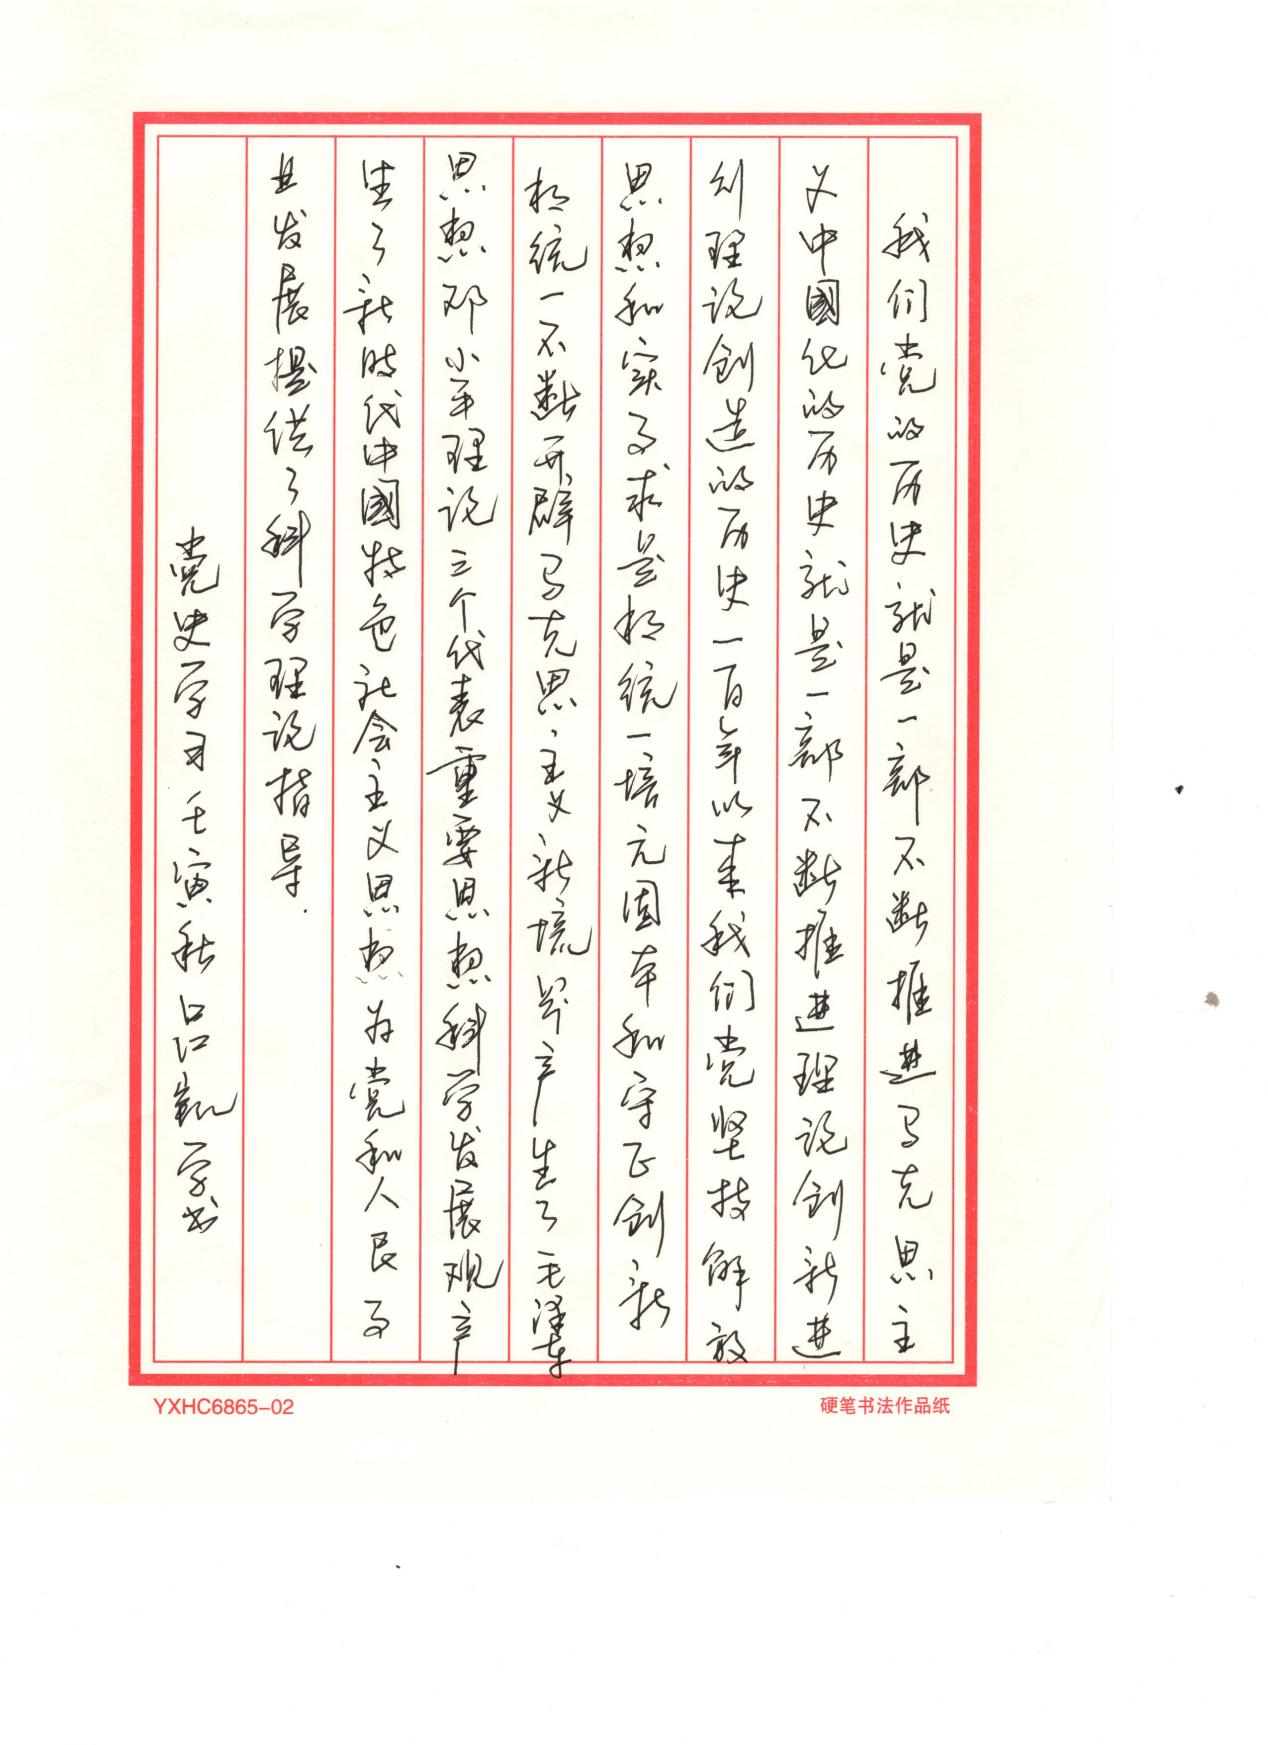 我们党的历史就是一部不断推进马克思主
义中國化的历史就是一部不断推进理论创新进
行理论创造的历史一百年以来我们党坚持解放
思想和实事求是相统一培元固本和守正创新
相统一不断开辟马克思主义新境界产生了毛泽东
思想邓小平理论三个代表重要思想科学发展观产
生了新时代中國特色社会主义思想为党和人民事
业发展提供了科学理论指导.
党史学习壬寅秋凯学书
YXHC6865-02
硬笔书法作品纸